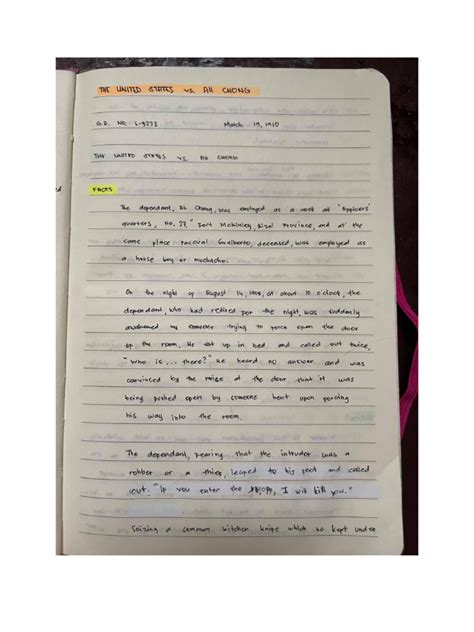 THE UNITED STATES vs. AH CHONG
G.R. No. L-5272 March 19, 1910
THE UNITED STATES vs. AH CHONG
FACTS
The defendant, Ah Chong, was employed as a cook at "Officers'
quarters, No. 27," Fort McKinley, Rizal Province, and at the
same place Pascual Gualberto, deceased, was employed as
a house boy or muchacho.
On the night of August 14, 1908, at about 10 o'clock, the
defendant, who had retired for the night, was suddenly
awakened by someone trying to force open the door
of the room. He sat up in bed and called out twice,
"Who is ... there?" He heard no answer and was
convinced by the noise at the door that it was
being pushed open by someone bent upon forcing
his way into the room.
The defendant, fearing that the intruder was a
robber or a thief, leaped to his feet and called
out. "If you enter the room, I will kill you."
Seizing a common kitchen knife which he kept under